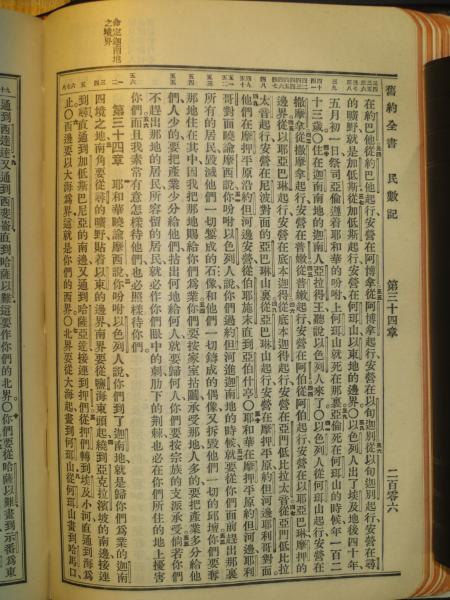 舊約全書 民數記 第三十四章 二百零六
在約巴他從約巴他起行安營在阿博拿從阿博拿起行安營在以旬迦別從以旬迦別起行安營在尋
的曠野就是加低斯從加低斯起行安營在何珥山以東地的邊界〇以色列人出了埃及地後四十年
五月初一日祭司亞倫遵着耶和華的吩咐上何珥山就死在那裏亞倫死在何珥山的時候年一百二
十三歲〇住在迦南南地的迦南人亞拉得王聽說以色列人來了〇以色列人從何珥山起行安營在
撒摩拿從撒摩拿起行安營在普嫩從普嫩起行安營在阿伯從阿伯起行安營在以耶亞巴琳摩押的
邊界從以耶亞巴琳起行安營在底本迦得從底本迦得起行安營在亞門低比拉太音從亞門低比拉
太音起行安營在尼波對面的亞巴琳山裏從亞巴琳山起行安營在摩押平原約但河邊耶利哥對面
他們在摩押平原沿約但河邊安營從伯耶施末直到亞伯什亭〇耶和華在摩押平原約但河邊耶利
哥對面曉諭摩西說你吩咐以色列人說你們過約但河進迦南地的時候就要從你們面前趕出那裏
所有的居民毀滅他們一切鏨成的石像和他們一切鑄成的偶像又拆毀他們一切的邱壇你們要奪
那地住在其中因我把那地賜給你們爲業你們要按家室拈鬮承受那地人多的要把產業多分給他
們人少的要把產業少分給他們拈出何地給何人就要歸何人你們要按宗族的支派承受倘若你們
不趕出那地的居民所容留的居民就必作你們眼中的刺肋下的荊棘也必在你們所住的地上擾害
你們而且我素常有意怎樣待他們也必照樣待你們
第三十四章 耶和華曉諭摩西說你吩咐以色列人說你們到了迦南地就是歸你們爲業的迦南
四境之地南角要從尋的曠野貼着以東的邊界南界要從鹽海東頭起繞到亞克拉濱坡的南邊接連
到尋直通到加低斯巴尼亞的南邊又通到哈薩亞達接連到押們從押們轉到埃及小河直通到海爲
止〇西邊要以大海爲界這就是你們的西界〇北界要從大海起畫到何珥山從何珥山畫到哈馬口
通到西達達又通到西斐崙直到哈薩以難這要作你們的北界〇你們要從哈薩以難畫到示番爲東
命定迦南地
之境界